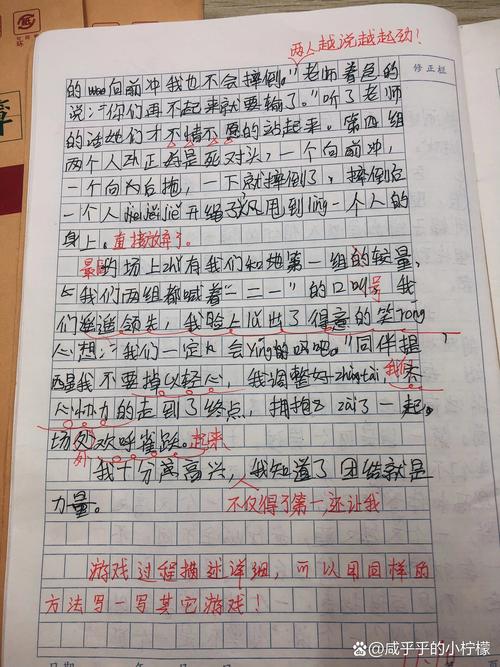 两人越说越起劲！
修正栏
的 向前冲我也不会摔倒。"老师着急的
说："你们再不起来就要输了。"听了老师
的话她们才不情不愿的站起来。第四组
两个人 正 是死对头，一个向前冲，
一个向 后拖，一下就摔倒了，摔倒后
一个人 开绳子 甩到lìng一个人的
身上。直接放弃了。
最后的场上zhǐ有我们和她第一组的较量，
我们两组都喊着"一二一"的口叫号 我
们遥遥领先，我脸上 出了得意的笑róng
心想："我们一定 会yíng的 吧。"同伴提
醒我不要掉以轻心，我调整好zhuàng tài，我们齐
心协力的走到了终点，拥抱 zài了一起。
场外欢呼雀跃。起来
我十分 高兴，我知道了团结就是
力量。
不仅得了第一，还让我
游戏过程描述详细，可以用同样的
方法写一写其它游戏！
日期
咸乎乎的小柠檬